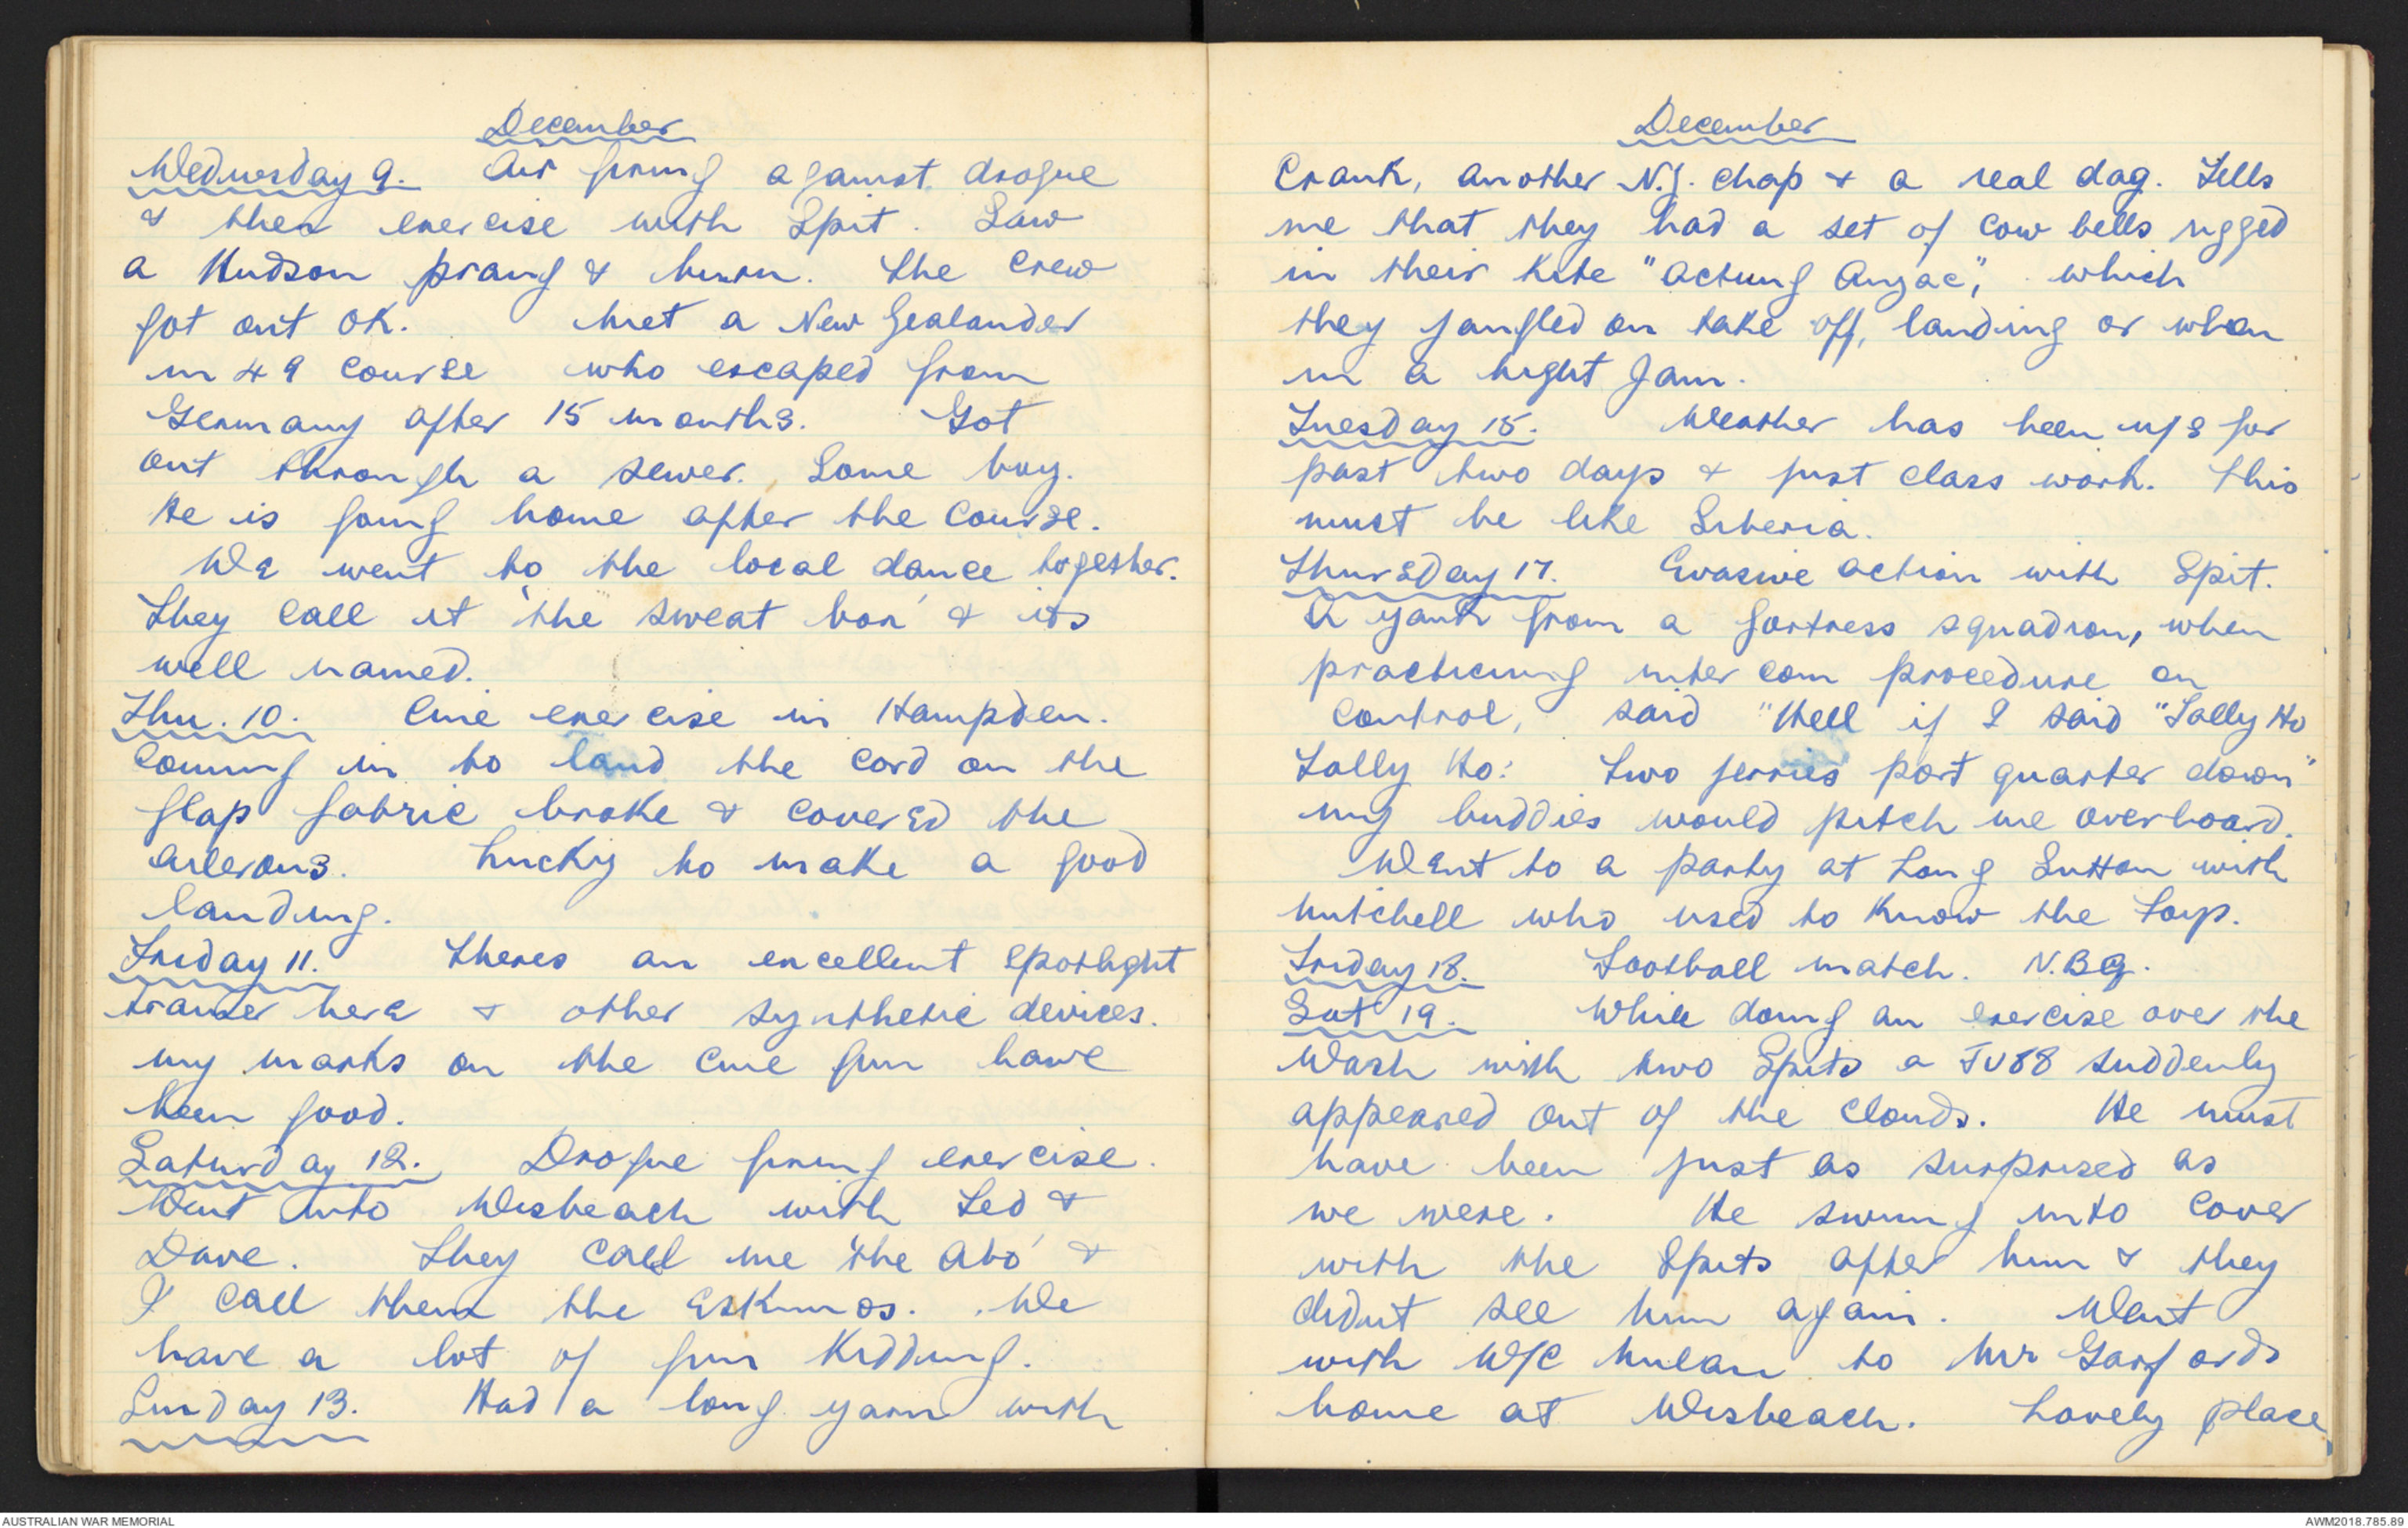 December
Wednesday 9. Air firing against drogue
& then exercise with Spit. Saw
a Hudson prang & burn. The crew
got out OK. Met a New Zealander
in 49 course who escaped from
Germany after 15 months. Got
out through a sewer. Some boy.
He is going home after the course.
We went to the local dance together.
They call it 'the sweat box' & its
well named.
Thu. 10. Cine exercise in Hampden.
Coming in to land the cord on the
flap fabric broke & covered the
ailerons. Lucky to make a good
landing.
Friday 11. Theres an excellent spotlight
trainer here & other synthetic devices.
My marks on the cine gun have
been good.
Saturday 12. Drogue firing exercise.
Went into Wisbeach with Ted &
Dave. They call me 'the Abo' &
I call them the Eskimos. We
have a lot of fun kidding.
Sunday 13. Had a long yarn with
December
Crank, another N.Z. chap & a real dag. Tells
me that they had a set of cow bells rigged
in their kite "Actung Anzac", which
they jangled on take off, landing or when
in a tight jam.
Tuesday 15. Weather has been u/s for
past two days & just class work. This
must be like Siberia.
Thursday 17. Evasive action with Spit.
A yank from a fortress squadron, when
practicing inter com procedure on
control, said "Hell if I said "Tally Ho
Tally Ho: Two jerries port quarter down"
my buddies would pitch me overboard.
Went to a party at Long Sutton with
Mitchell who used to know the Fays.
Friday 18. Football match. N.B.G.
Sat 19. While doing an exercise over the
Wash with two Spits a JU88 suddenly
appeared out of the clouds. He must
have been just as surprised as
we were. He swung into cover
with the Spits after him & they
didnt see him again. Went
with W/C Mulan to Mr Garfords
home at Wisbeach. Lovely place
AUSTRALIAN WAR MEMORIAL
AWM2018.785.89